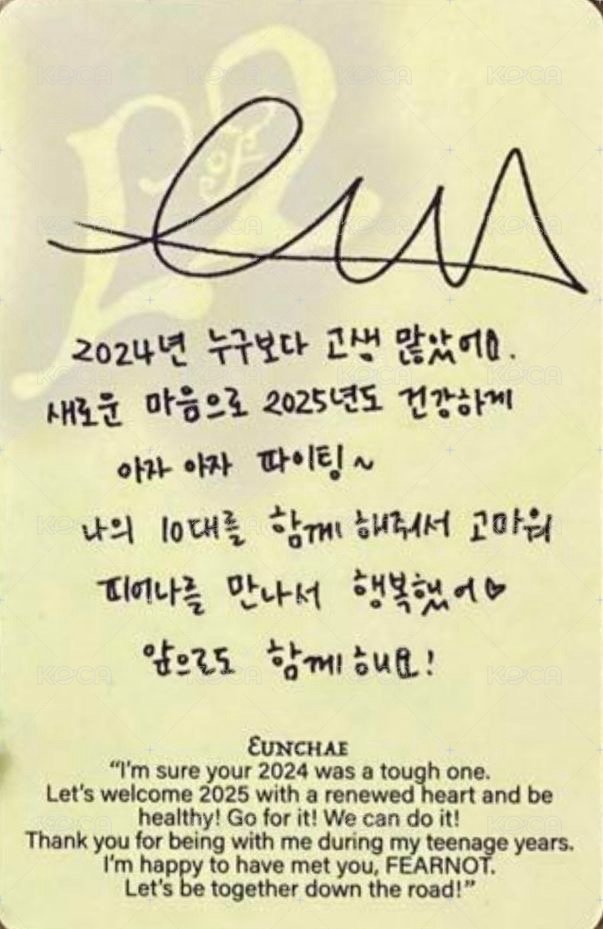 KOCA KOCA KOCA KOCA
2024년 누구보다 고생 많았어요.
새로운 마음으로 2025년도 건강하게
아자 아자 파이팅~
나의 10대를 함께 해줘서 고마워
피어나를 만나서 행복했어♥
앞으로도 함께 해요!
EUNCHAE
“I'm sure your 2024 was a tough one.
Let's welcome 2025 with a renewed heart and be
healthy! Go for it! We can do it!
Thank you for being with me during my teenage years.
I'm happy to have met you, FEARNOT.
Let's be together down the road!”